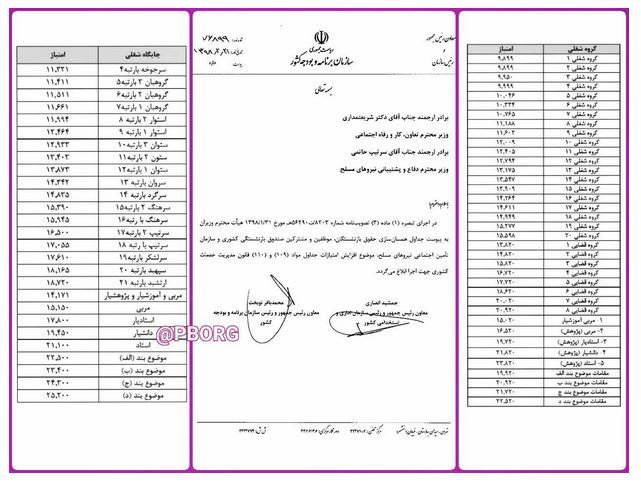 گروه شغلی	امتیاز
گروه شغلی ۱	۹,۸۹۹
گروه شغلی ۲	۹,۸۹۹
گروه شغلی ۳	۹,۹۵۰
گروه شغلی ۴	۹,۹۹۹
گروه شغلی ۵	۱۰,۰۴۶
گروه شغلی ۶	۱۰,۳۳۴
گروه شغلی ۷	۱۰,۷۶۵
گروه شغلی ۸	۱۱,۱۸۸
گروه شغلی ۹	۱۱,۶۰۲
گروه شغلی ۱۰	۱۲,۰۰۹
گروه شغلی ۱۱	۱۲,۴۰۵
گروه شغلی ۱۲	۱۲,۷۹۴
گروه شغلی ۱۳	۱۳,۱۷۵
گروه شغلی ۱۴	۱۳,۵۴۷
گروه شغلی ۱۵	۱۳,۹۰۹
گروه شغلی ۱۶	۱۴,۲۶۴
گروه شغلی ۱۷	۱۴,۶۱۱
گروه شغلی ۱۸	۱۴,۹۴۹
گروه شغلی ۱۹	۱۵,۲۷۷
گروه شغلی ۲۰	۱۵,۵۹۸
گروه قضایی ۱	۱۳,۸۲۰
گروه قضایی ۲	۱۴,۸۲۰
گروه قضایی ۳	۱۵,۸۲۰
گروه قضایی ۴	۱۶,۷۲۰
گروه قضایی ۵	۱۷,۶۲۰
گروه قضایی ۶	۱۸,۶۲۰
گروه قضایی ۷	۱۹,۷۲۰
گروه قضایی ۸	۲۰,۹۲۰
۱- مربی آموزشیار	۱۵,۰۲۰
۲- مربی (پژوهش)	۱۶,۵۲۰
۳- استادیار (پژوهش)	۱۹,۷۲۰
۴- دانشیار (پژوهش)	۲۱,۲۲۰
۵- استاد (پژوهش)
مقامات موضوع بند الف	۱۹,۹۲۰
مقامات موضوع بند ب	۲۰,۹۲۰
مقامات موضوع بند ج	۲۱,۷۲۰
مقامات موضوع بند د	۲۲,۵۲۰
معاون رئیس جمهور
و
رئیس سازمان
ریاست جمهوری
سازمان برنامه و بودجه کشور
بسمه تعالی
برادر ارجمند جناب آقای دکتر شریعتمداری
وزیر محترم تعاون، کار و رفاه اجتماعی
برادر ارجمند جناب آقای سرتیپ حاتمی
وزیر محترم دفاع و پشتیبانی نیروهای مسلح
با سلام و احترام؛
در اجرای تبصره (۱) ماده (۲) تصویب‌نامه شماره مورخ ۱۳۹۸/۱/۳۱ هیأت محترم وزیران
به پیوست جداول همسان‌سازی حقوق بازنشستگان، موظفین و مشترکین صندوق بازنشستگی کشوری و سازمان
تأمین اجتماعی نیروهای مسلح، موضوع افزایش امتیازات جداول مواد (۱۰۹) و (۱۱۰) قانون مدیریت خدمات
کشوری جهت اجرا ابلاغ می‌گردد.
جمشید انصاری
معاون رئیس جمهور و رئیس سازمان اداری و
استخدامی کشور
محمدباقر نوبخت
معاون رئیس جمهور و رئیس سازمان برنامه و بودجه
کشور
جایگاه شغلی	امتیاز
سرجوخه بارتبه ۴	۱۱,۳۲۱
گروهبان ۳ بارتبه ۵	۱۱,۴۱۱
گروهبان ۲ بارتبه ۶	۱۱,۵۱۱
گروهبان ۱ بارتبه ۷	۱۱,۶۶۱
استوار ۲ بارتبه ۸	۱۱,۹۹۴
استوار ۱ بارتبه ۹	۱۲,۴۶۴
ستوان ۳ بارتبه ۱۰	۱۲,۹۳۳
ستون ۲ بارتبه ۱۱	۱۳,۴۰۳
ستوان ۱ بارتبه ۱۲	۱۳,۸۷۳
سروان بارتبه ۱۳	۱۴,۳۴۲
سرگرد بارتبه ۱۴	۱۴,۸۳۵
سرهنگ ۲ بارتبه ۱۵	۱۵,۳۹۰
سرهنگ با رتبه ۱۶	۱۵,۹۴۵
سرتیپ ۲ بارتبه ۱۷	۱۶,۵۰۰
سرتیپ با رتبه ۱۸	۱۷,۰۵۵
سرلشکر بارتبه ۱۹	۱۷,۶۱۰
سپهبد بارتبه ۲۰	۱۸,۱۶۵
ارتشبد بارتبه ۲۱	۱۸,۷۲۰
مربی و آموزشیار و پژوهشیار	۱۴,۱۷۱
مربی	۱۵,۱۵۰
استادیار	۱۷,۸۰۰
دانشیار	۱۹,۴۵۰
استاد	۲۱,۱۰۰
موضوع بند (الف)	۲۲,۵۰۰
موضوع بند (ب)	۲۳,۴۰۰
موضوع بند (ج)	۲۴,۳۰۰
موضوع بند (د)	۲۵,۲۰۰
@PBORG